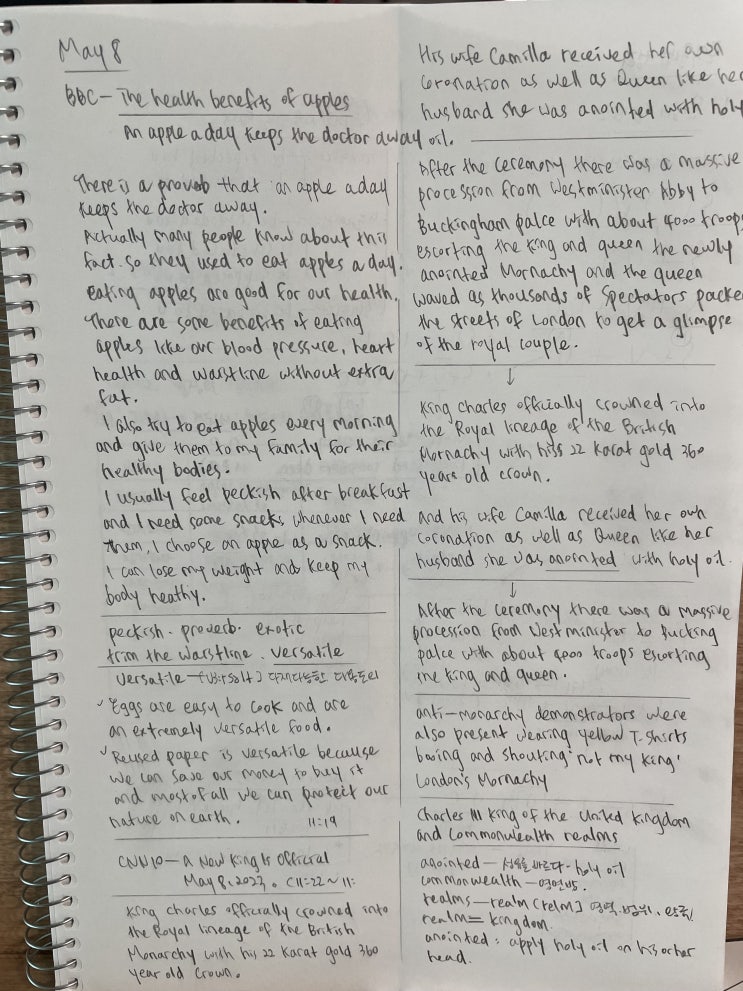 May 8
BBC - The health benefits of apples
An apple a day keeps the doctor away
There is a provob that an apple a day
keeps the doctor away.
Actually many people know about this
fact. so they used to eat apples a day.
eating apples are good for our health.
There are some benefits of eating
apples like our blood pressure, heart
health and waistline without extra
fat.
I also try to eat apples every morning
and give them to my family for their
healthy bodies.
I usually feel peckish after breakfast
and I need some snacks whenever I need
them, I choose an apple as a snack.
I can lose my weight and keep my
body heathy.
peckish. proverb. exotic
trim the waistline. versatile
versatile - 다재다능한 다용도의
✓ Eggs are easy to cook and are
an extremely versatile food.
✓ Reused paper is versatile because
we can save our money to buy it
and most of all we can protect our
nature on earth. 11:19
CNN10 - A New King Is Official
May 8. 2023. (11:22~11:
King Charles officially crowned into
the Royal lineage of the British
Monarchy with his 22 karat gold 360
year old crown.
His wife Camilla received her own
coronation as well as Queen like her
husband she was anointed with holy
oil.
After the ceremony there was a massive
procession from Westminister Abby to
Buckingham palce with about 4000 troops
escorting the king and queen the newly
anointed Mornachy and the queen
waved as thousands of spectators packe
the streets of London to get a glimpse
of the royal couple.
↓
King Charles officially crowned into
the Royal lineage of the British
Mornachy with hiss 22 karat gold 360
years old crown.
and his wife Camilla received her own
coronation as well as Queen like her
husband she was anointed with holy oil.
↓
After the ceremony there was a massive
procession from Westminister to Bucking
palce with about 4000 troops escorting
the king and queen.
anti-monarchy demonstrators were
also present wearing yellow T-shirts
booing and shouting 'not my King'
London's Mornachy
Charles III King of the United Kingdom
and Commonwealth realms
anointed - 성유를 바르다 - holy oil
commonwealth - 영연방.
realms - realm [relm] 영역. 범위. 왕국/
realm = kingdom.
anointed : apply holy oil on his or her
head.